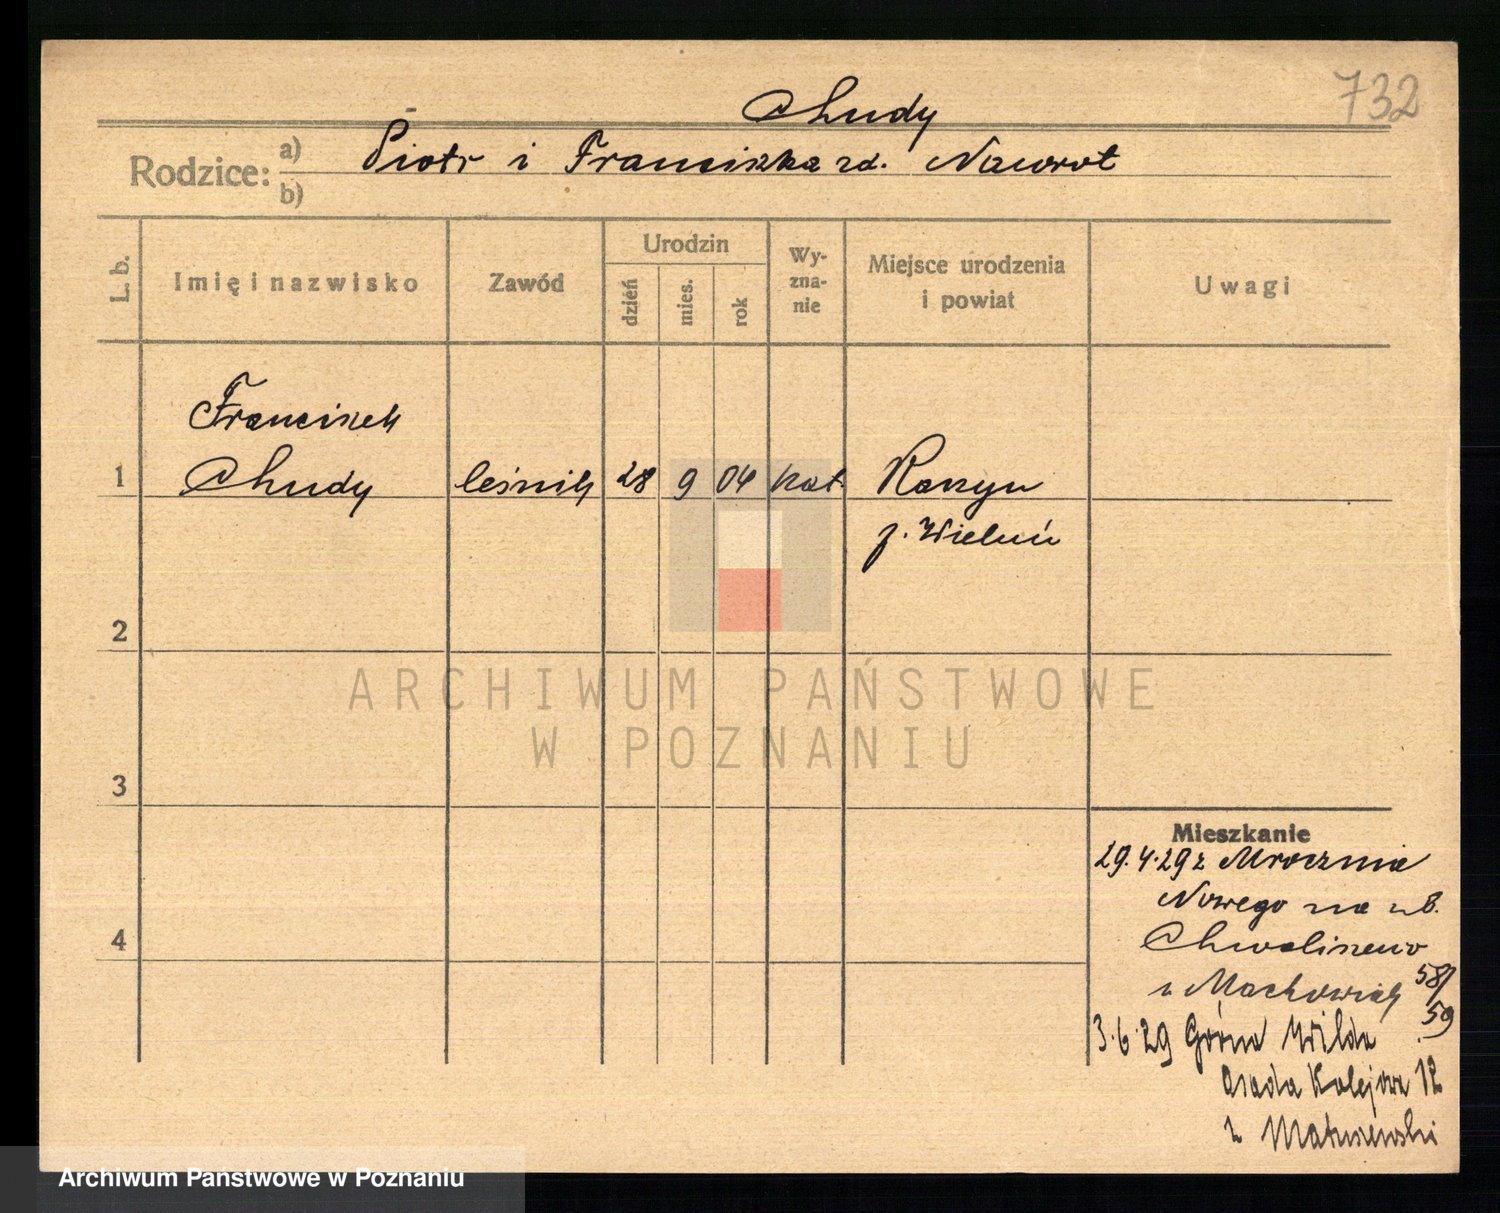 732
Chudy
Rodzice: a) Piotr i Franciszka zd. Nawrot
b)
L. b. Imię i nazwisko Zawód Urodzin dzień mies. rok Wy-zna-nie Miejsce urodzenia i powiat Uwagi
Franciszek
1 Chudy leśnik 28 9 04 kat. Raszyn
p. Wieluń
2
ARCHIWUM PAŃSTWOWE
W POZNANIU
3
Mieszkanie
29.4.29 z Mrocznia
Nowego na ul.
4
Chwaliszewo
u Maćkowiak 58/59
3.6.29 Górna Wilda
Osada Kolejowa 12
u Matuszewski
Archiwum Państwowe w Poznaniu